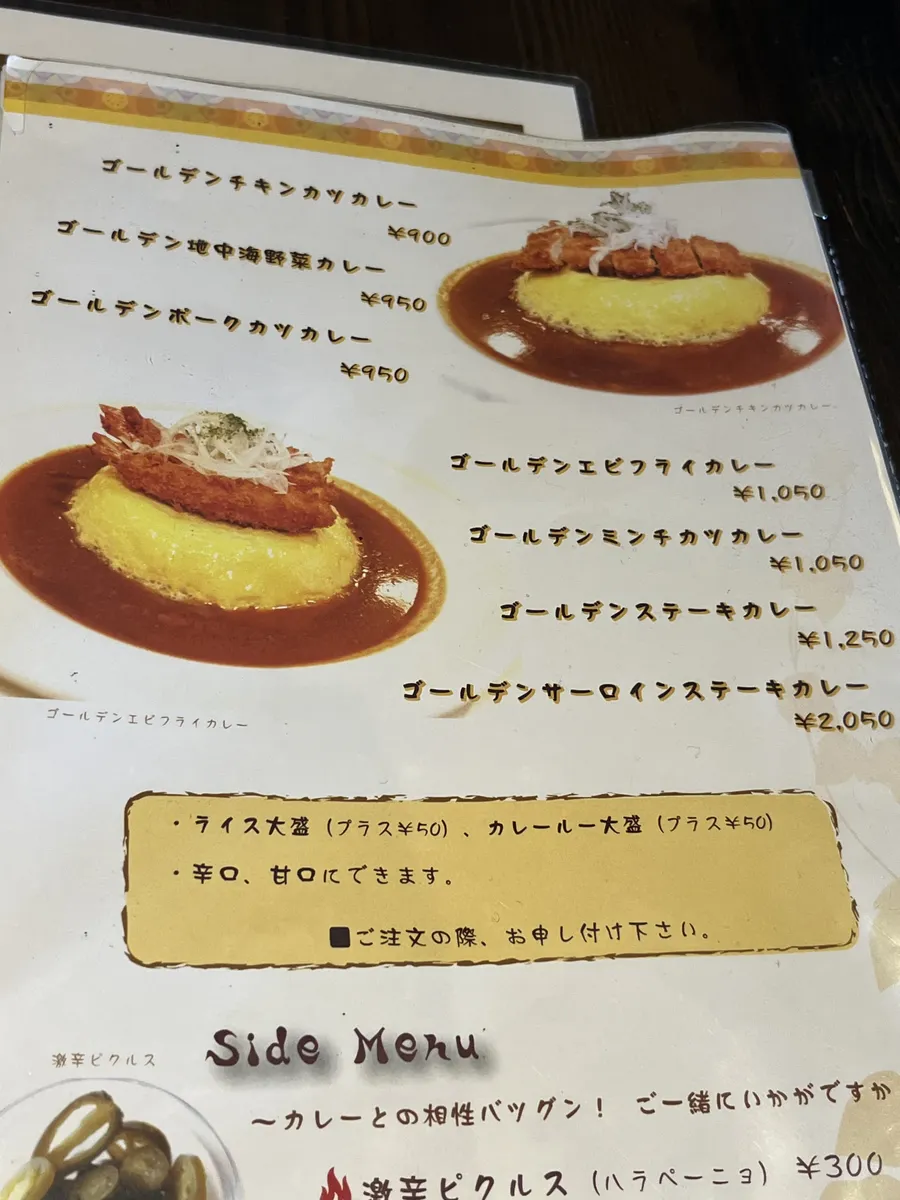 ゴールデンチキンカツカレー
¥900
ゴールデン地中海野菜カレー
¥950
ゴールデンポークカツカレー
¥950
ゴールデンチキンカツカレー
ゴールデンエビフライカレー
¥1,050
ゴールデンミンチカツカレー
¥1,050
ゴールデンステーキカレー
¥1,250
ゴールデンサーロインステーキカレー
¥2,050
ゴールデンエビフライカレー
・ライス大盛（プラス¥50）、カレールー大盛（プラス¥50）
・辛口、甘口にできます。
■ご注文の際、お申し付け下さい。
Side Menu
激辛ピクルス
～カレーとの相性バツグン！ ご一緒にいかがですか
激辛ピクルス（ハラペーニョ） ¥300